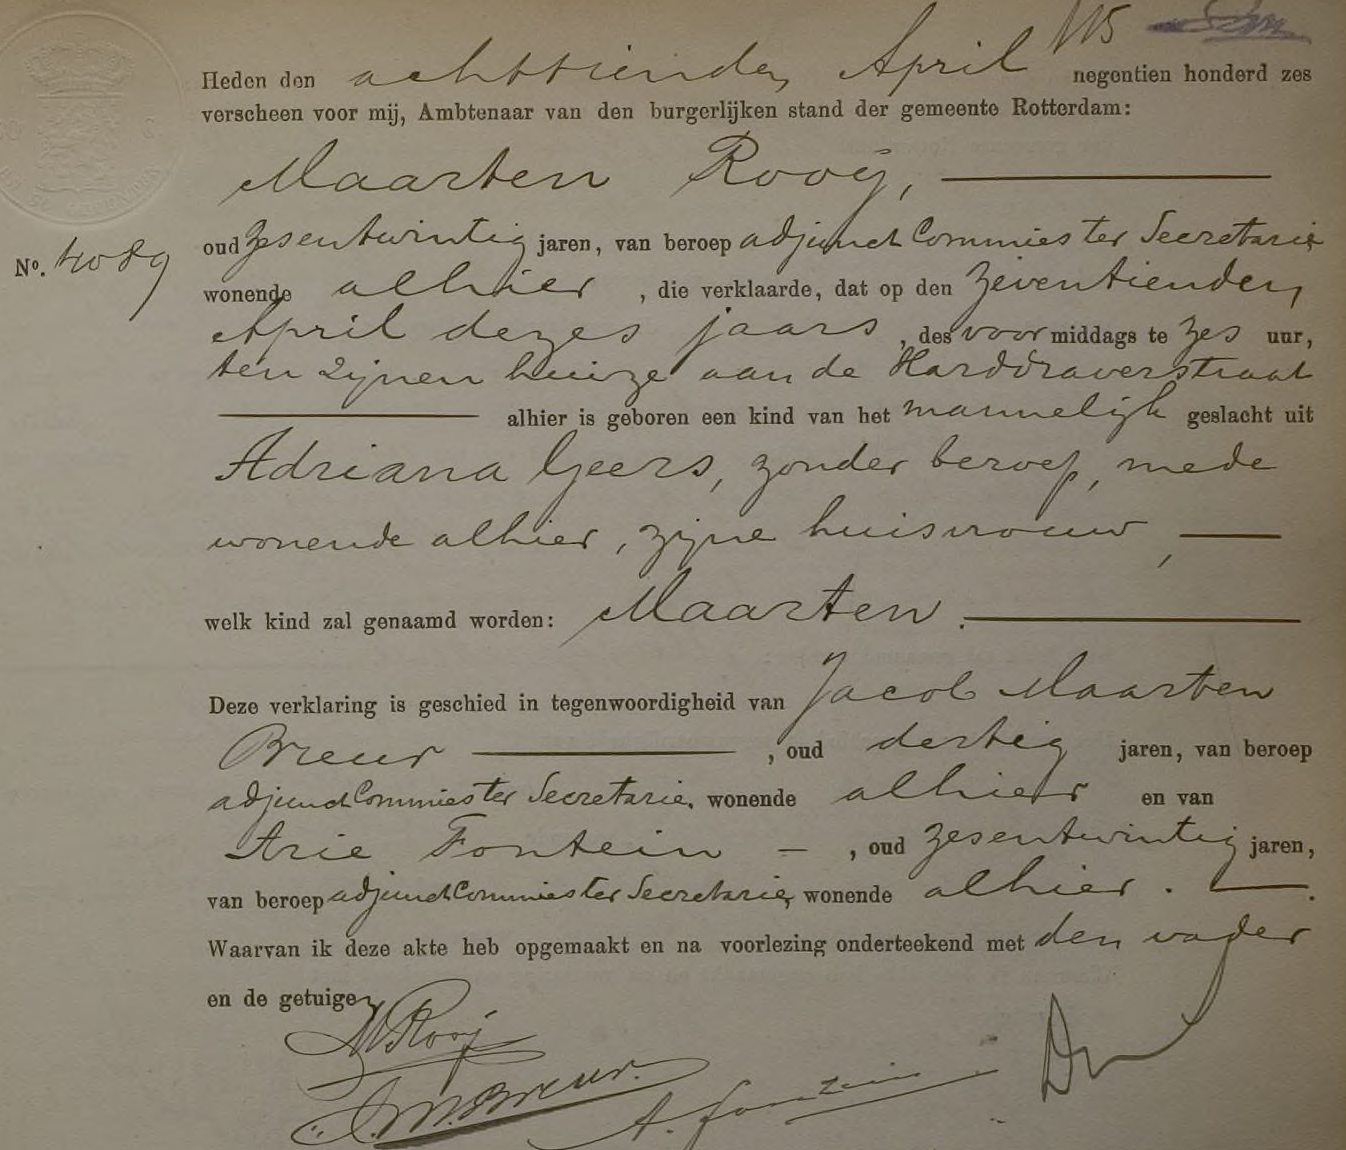 115
Heden den achttienden April negentien honderd zes
verscheen voor mij, Ambtenaar van den burgerlijken stand der gemeente Rotterdam:
Maarten Rooij,
No. 4089
oud zesentwintig jaren, van beroep adjunct Commies ter Secretarie,
wonende alhier, die verklaarde, dat op den zeventienden
April dezes jaars, des voormiddags te zes uur,
ten zijnen huize aan de Harddraverstraat
alhier is geboren een kind van het mannelijk geslacht uit
Adriana Geers, zonder beroep, mede
wonende alhier, zijne huisvrouw,
welk kind zal genaamd worden: Maarten.
Deze verklaring is geschied in tegenwoordigheid van Jacob Maarten
Breur, oud dertig jaren, van beroep
adjunct Commies ter Secretarie, wonende alhier en van
Arie Fontein, oud zesentwintig jaren,
van beroep adjunct Commies ter Secretarie, wonende alhier.
Waarvan ik deze akte heb opgemaakt en na voorlezing onderteekend met den vader
en de getuigen
M Rooij
J.M. Breur.
A. Fontein